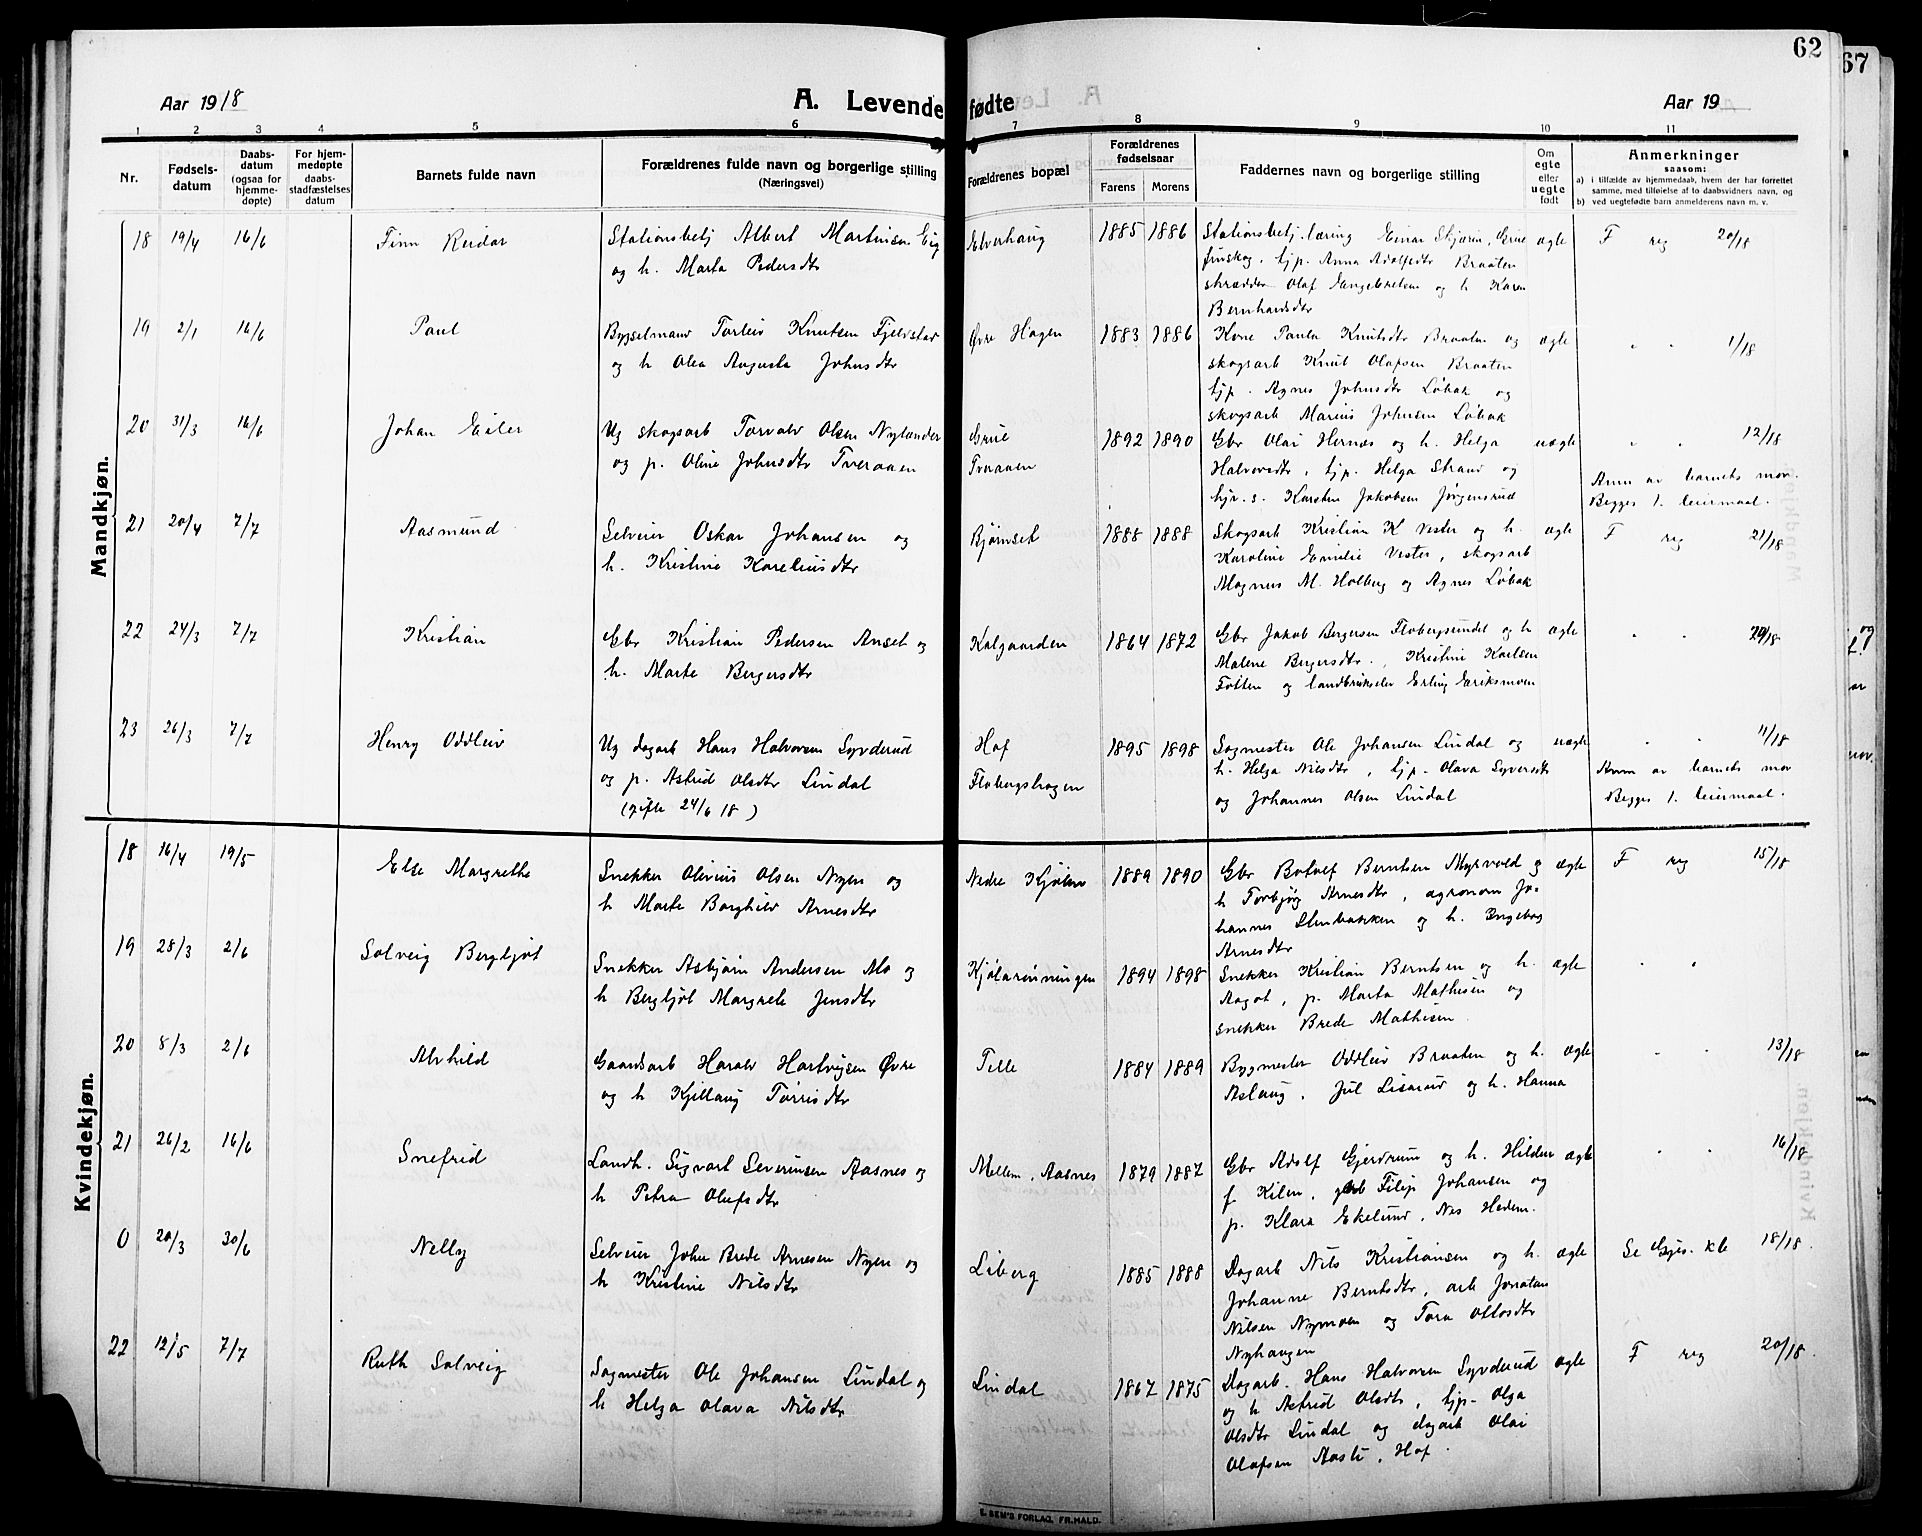 62
67
Aar 1918
A. Levende fødte
Aar 19
1 2 3 4 5 6 7 8 9 10 11
Nr.
Fødsels-
datum
Daabs-
datum
(ogsaa for
hjemme-
døpte)
For hjem-
medøpte
daabs-
stadfæstelses
datum
Barnets fulde navn
Forældrenes fulde navn og borgerlige stilling
(Næringsvei)
Forældrenes bopæl
Forældrenes
fødselsaar
Farens Morens
Faddernes navn og borgerlige stilling
Om
egte
eller
uegte
født
Anmerkninger
saasom:
a) i tilfælde av hjemmedaab, hvem der har forrettet
samme, med tilføielse af to daabsvidners navn, og
b) ved uegtefødte barn anmelderens navn m. v.
Mandkjøn.
18 19/4 16/6 Finn Reidar Stationsbetj Albert Martinsen Eig Elverhaug 1885 1886 Stationsbetj. læring Einar Skjærin, Grue ægte F reg 20/18
og h. Marta Pedersdtr
finskog, tjp. Anna Adolfsdtr Braaten
skrædder Olaf Engebretsen og h Karen
Bernhardsdtr
19 2/1 16/6 Paul Bygselmand Torleiv Knutsen Fjeldstad Øvre Hagen 1883 1886 Kone Paula Knutsdtr Braaten og ægte " " 1/18
og h Olea Augusta Johnsdtr
skogsarb Knut Olafsen Braaten
tjp. Agnes Johnsdtr Løbak og
skogsarb Marius Johnsen Løbak
20 31/3 16/6 Johan Eiler Ug skogsarb Torvald Olsen Nylænder Grue 1892 1890 Gbr Olai Hernæs og h. Helga uægte " " 12/18
og p. Oline Johnsdtr Tveraaen Tveraaen
Halvorsdtr, tjp. Helga Strand og
hjv. s. Karsten Jakobsen Jørgensrud
Anm av barnets mor.
Begges 1. leiermaal.
21 20/4 7/7 Aasmund Selveier Oskar Johansen og Bjørnset 1888 1888 Skogsarb Kristian K Vester og h. ægte F reg 21/18
h. Kristine Koreliusdtr
Karoline Emilie Vester, skogsarb
Magnus M. Holberg og Agnes Løbak
22 24/3 7/7 Kristian Gbr Kristian Pedersen Anset og Kalgaarden 1864 1872 Gbr Jakob Bergersen Flobergsundet og h ægte " " 20/18
h. Marte Bergersdtr
Malene Bergersdtr., Kristine Karlsen
Fotten og landbrukselev Erling Eriksmoen
23 26/3 7/7 Henry Oddleiv Ug dagarb Hans Halvorsen Syverud Hof 1895 1898 Sagmester Ole Johansen Lindal og uægte " " 11/18
og p. Astrid Olsdtr Lindal Flobergshagen
(gifte 24/6 18)
h. Helga Nilsdtr, tjp. Olava Syversdtr
og Johannes Olsen Lindal
Anm av barnets mor
Begges 1. leiermaal.
Kvindekjøn.
18 16/4 19/5 Else Margrethe Snekker Olivius Olsen Nyen og Nedre Kjølen 1889 1890 Gbr Botolf Berntsen Myrvold og ægte F reg 15/18
h Marte Borghild Arnesdtr
h Torbjørg Arnesdtr, agronom Jo-
hannes Stenbakken og h. Ingeborg
Arnesdtr
19 28/3 2/6 Solveig Bergljot Snekker Asbjørn Andersen Mo og Kjølarønningen 1894 1898 Snekker Kristian Berntsen og h. ægte " "
h Bergljot Margrete Jensdtr
Aagot, p. Marta Mathisen og
snekker Brede Mathisen.
20 8/3 2/6 Alvhild Gaardsarb Harald Hartvigsen Øvre Telle 1884 1889 Bygmester Oddleiv Braaten og h. ægte " " 13/18
og h Kjellaug Torrisdtr
Aslaug, Jul Lisarud og h. Hanna
21 26/2 16/6 Snefrid Landh. Sigvart Severinsen Aasnes og Mellem, Aasnes 1879 1887 Gbr Adolf Gjerdrum og h. Hildur ægte " " 16/18
h Petra Olufsdtr
f Kilen, gbr Filip Johansen og
p. Klara Ekelund, Nes Hedem.
0 20/3 30/6 Nelly Selveier John Brede Arnesen Nyen og Liberg 1885 1888 Dagarb Nils Kristiansen og h. ægte Se Gjes. kb 18/18.
h Kristine Nilsdtr
Johanne Berntsdtr, arb Jonatan
Nilsen Nymoen og Tora Ottosdtr
Nyhaugen
22 12/5 7/7 Ruth Solveig Sagmester Ole Johansen Lindal og Lindal 1867 1875 Dagarb. Hans Halvorsen Syverud ægte F reg 20/18.
h Helga Olava Nilsdtr
og h Astrid Olsdtr, tjp. Olga
Olsdtr Lindal og dagarb Olai
Olafsen Aaste, Hof.
E. SEM'S FORLAG, FR.HALD.